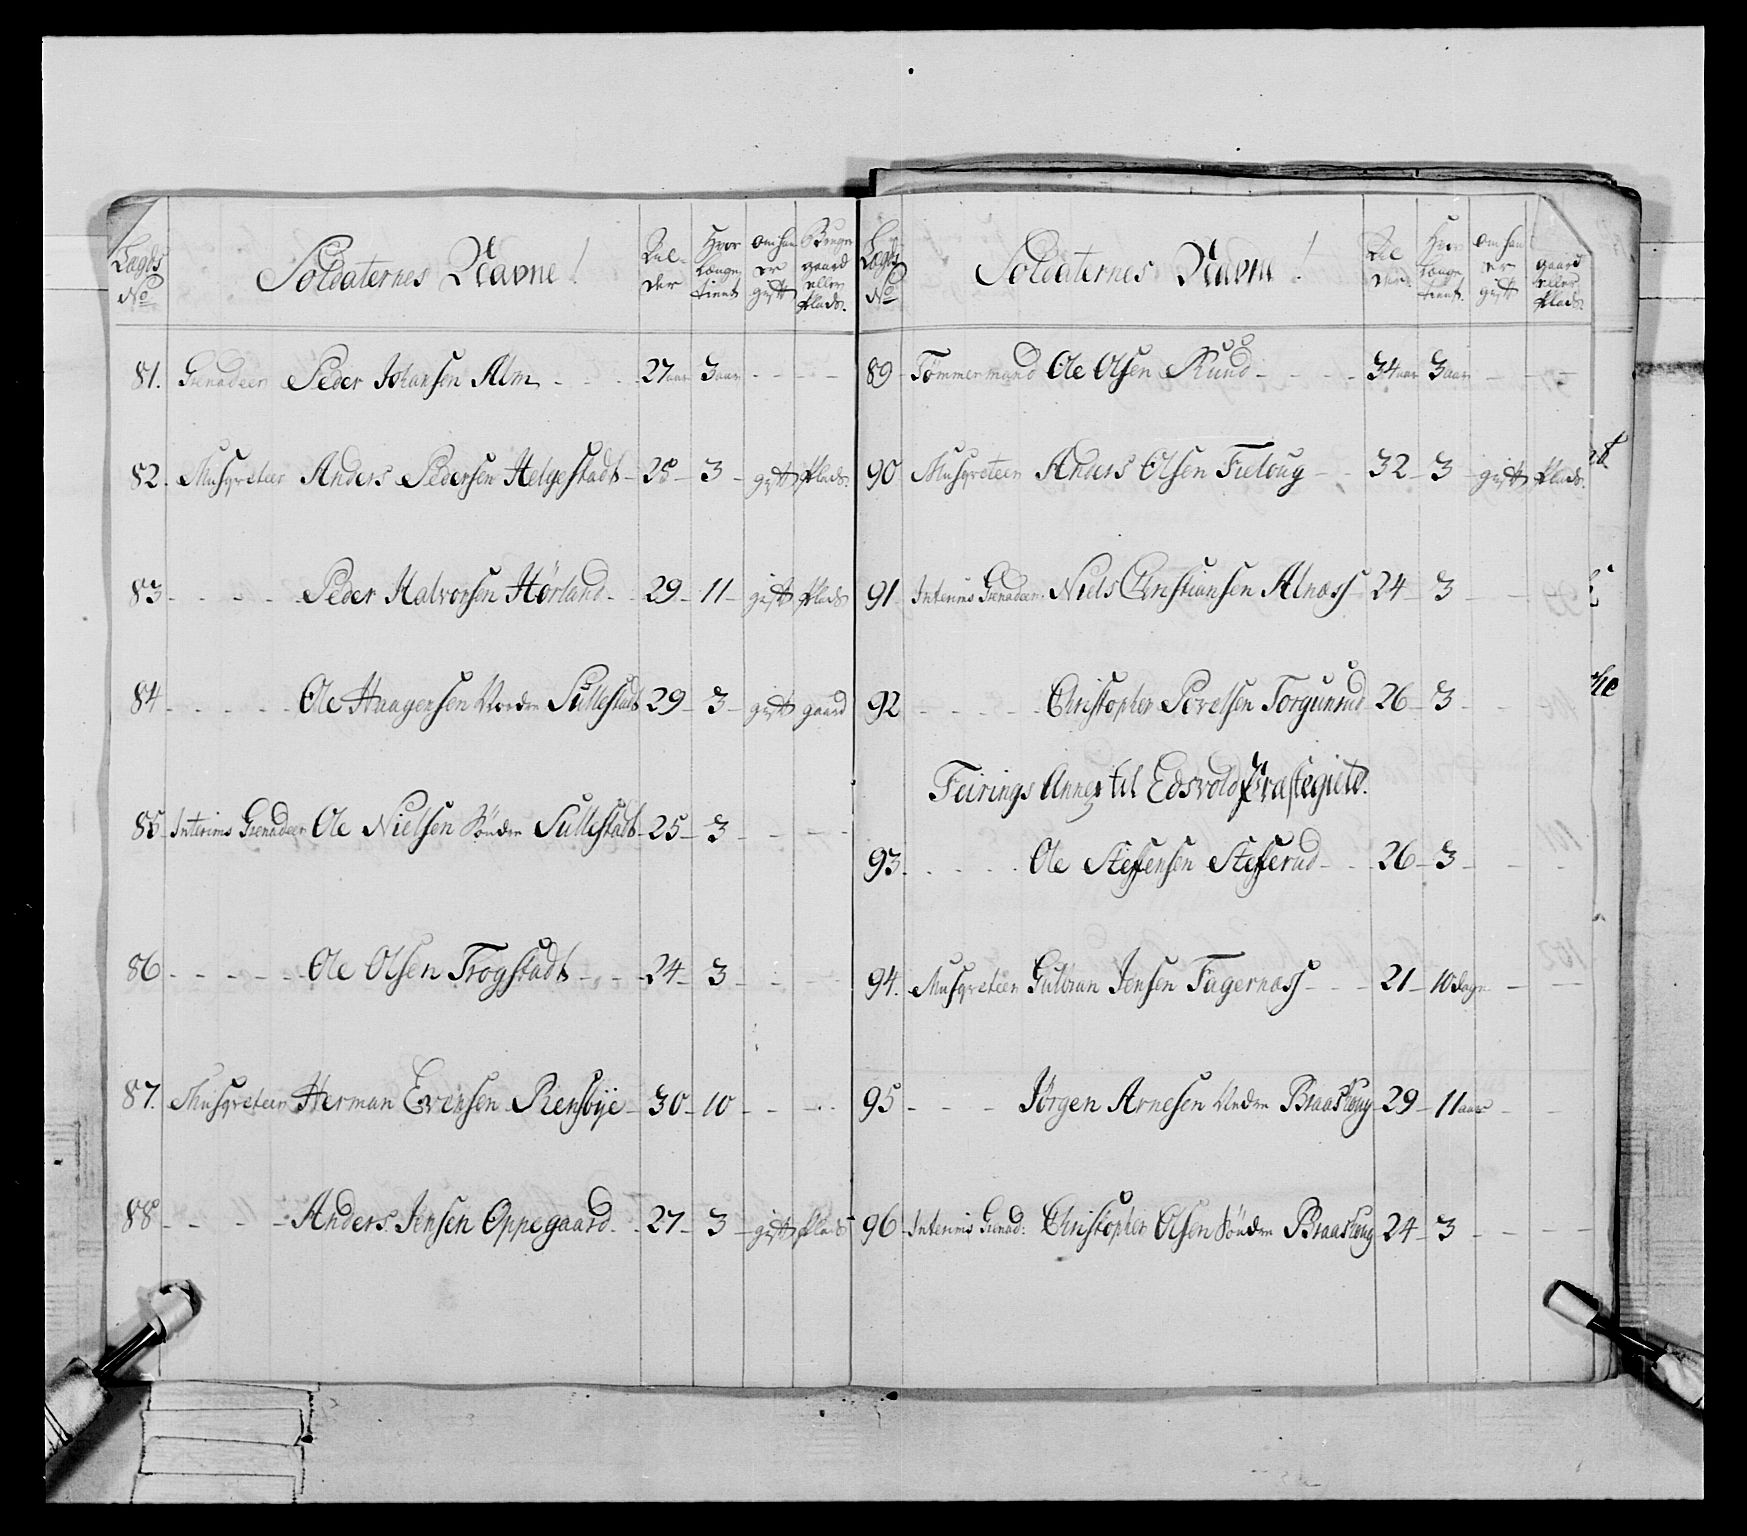 Lægds No | Soldaternes Navne! | Aal-der | Hvor længe tient | om han er gift | Bruger gaard eller plads.
81. Grenadeer Peder Johansen Alm - - - 27 aar 3 aar - - - -
82. Musqveteer Anders Pedersen Helgestadt - 25 - 3 - gift plads.
83 - - - - - Peder Halvorsen Hørland - - 29 - 11 - gift plads
84 - - - - - Ole Haagensen Nordre Sullestadt 29 - 3 - gift gaard
85 - Interims Grenadeer Ole Nielsen Søndre Sullestadt - 25 - 3 - - - -
86 - - - - - Ole Olsen Trogstadt - - - 24 - 3 - - - -
87. Musqveteer Herman Evensen Rensbye - 30 - 10 - - - -
88 - - - - Anders Jensen Oppegaard - - 27 - 3 - gift plads
Lægds No | Soldaternes Navne! | Aal-der | Hvor længe tient. | om han er gift | gaard eller plads.
89 Tømmermand Ole Olsen Ruud - - - - 34 aar 3 aar - - -
90 Musqveteer Anders Olsen Fieloug - - 32 - 3 - gift plads.
91 Interims Grenadeer. Niels Christiansen Alnæss 24 - 3 - -
92 - - - - - Christopher Povelsen Torgunrud 26 - 3 - -
Feirings Annex til Edsvold Præstegield.
93. - - - - - Ole Steffensen Stefferud - - 26 - 3 - - -
94. Musqveteer Gulbran Jensen Fagernæss - - - 21 - 10 dage - -
95 - - - Jørgen Arnesen Nedre Braaskoug - 29 - 11 aar - - -
96 Interims Grenad: Christopher Olsen Søndre Braaskoug 24 - 3 - - - -